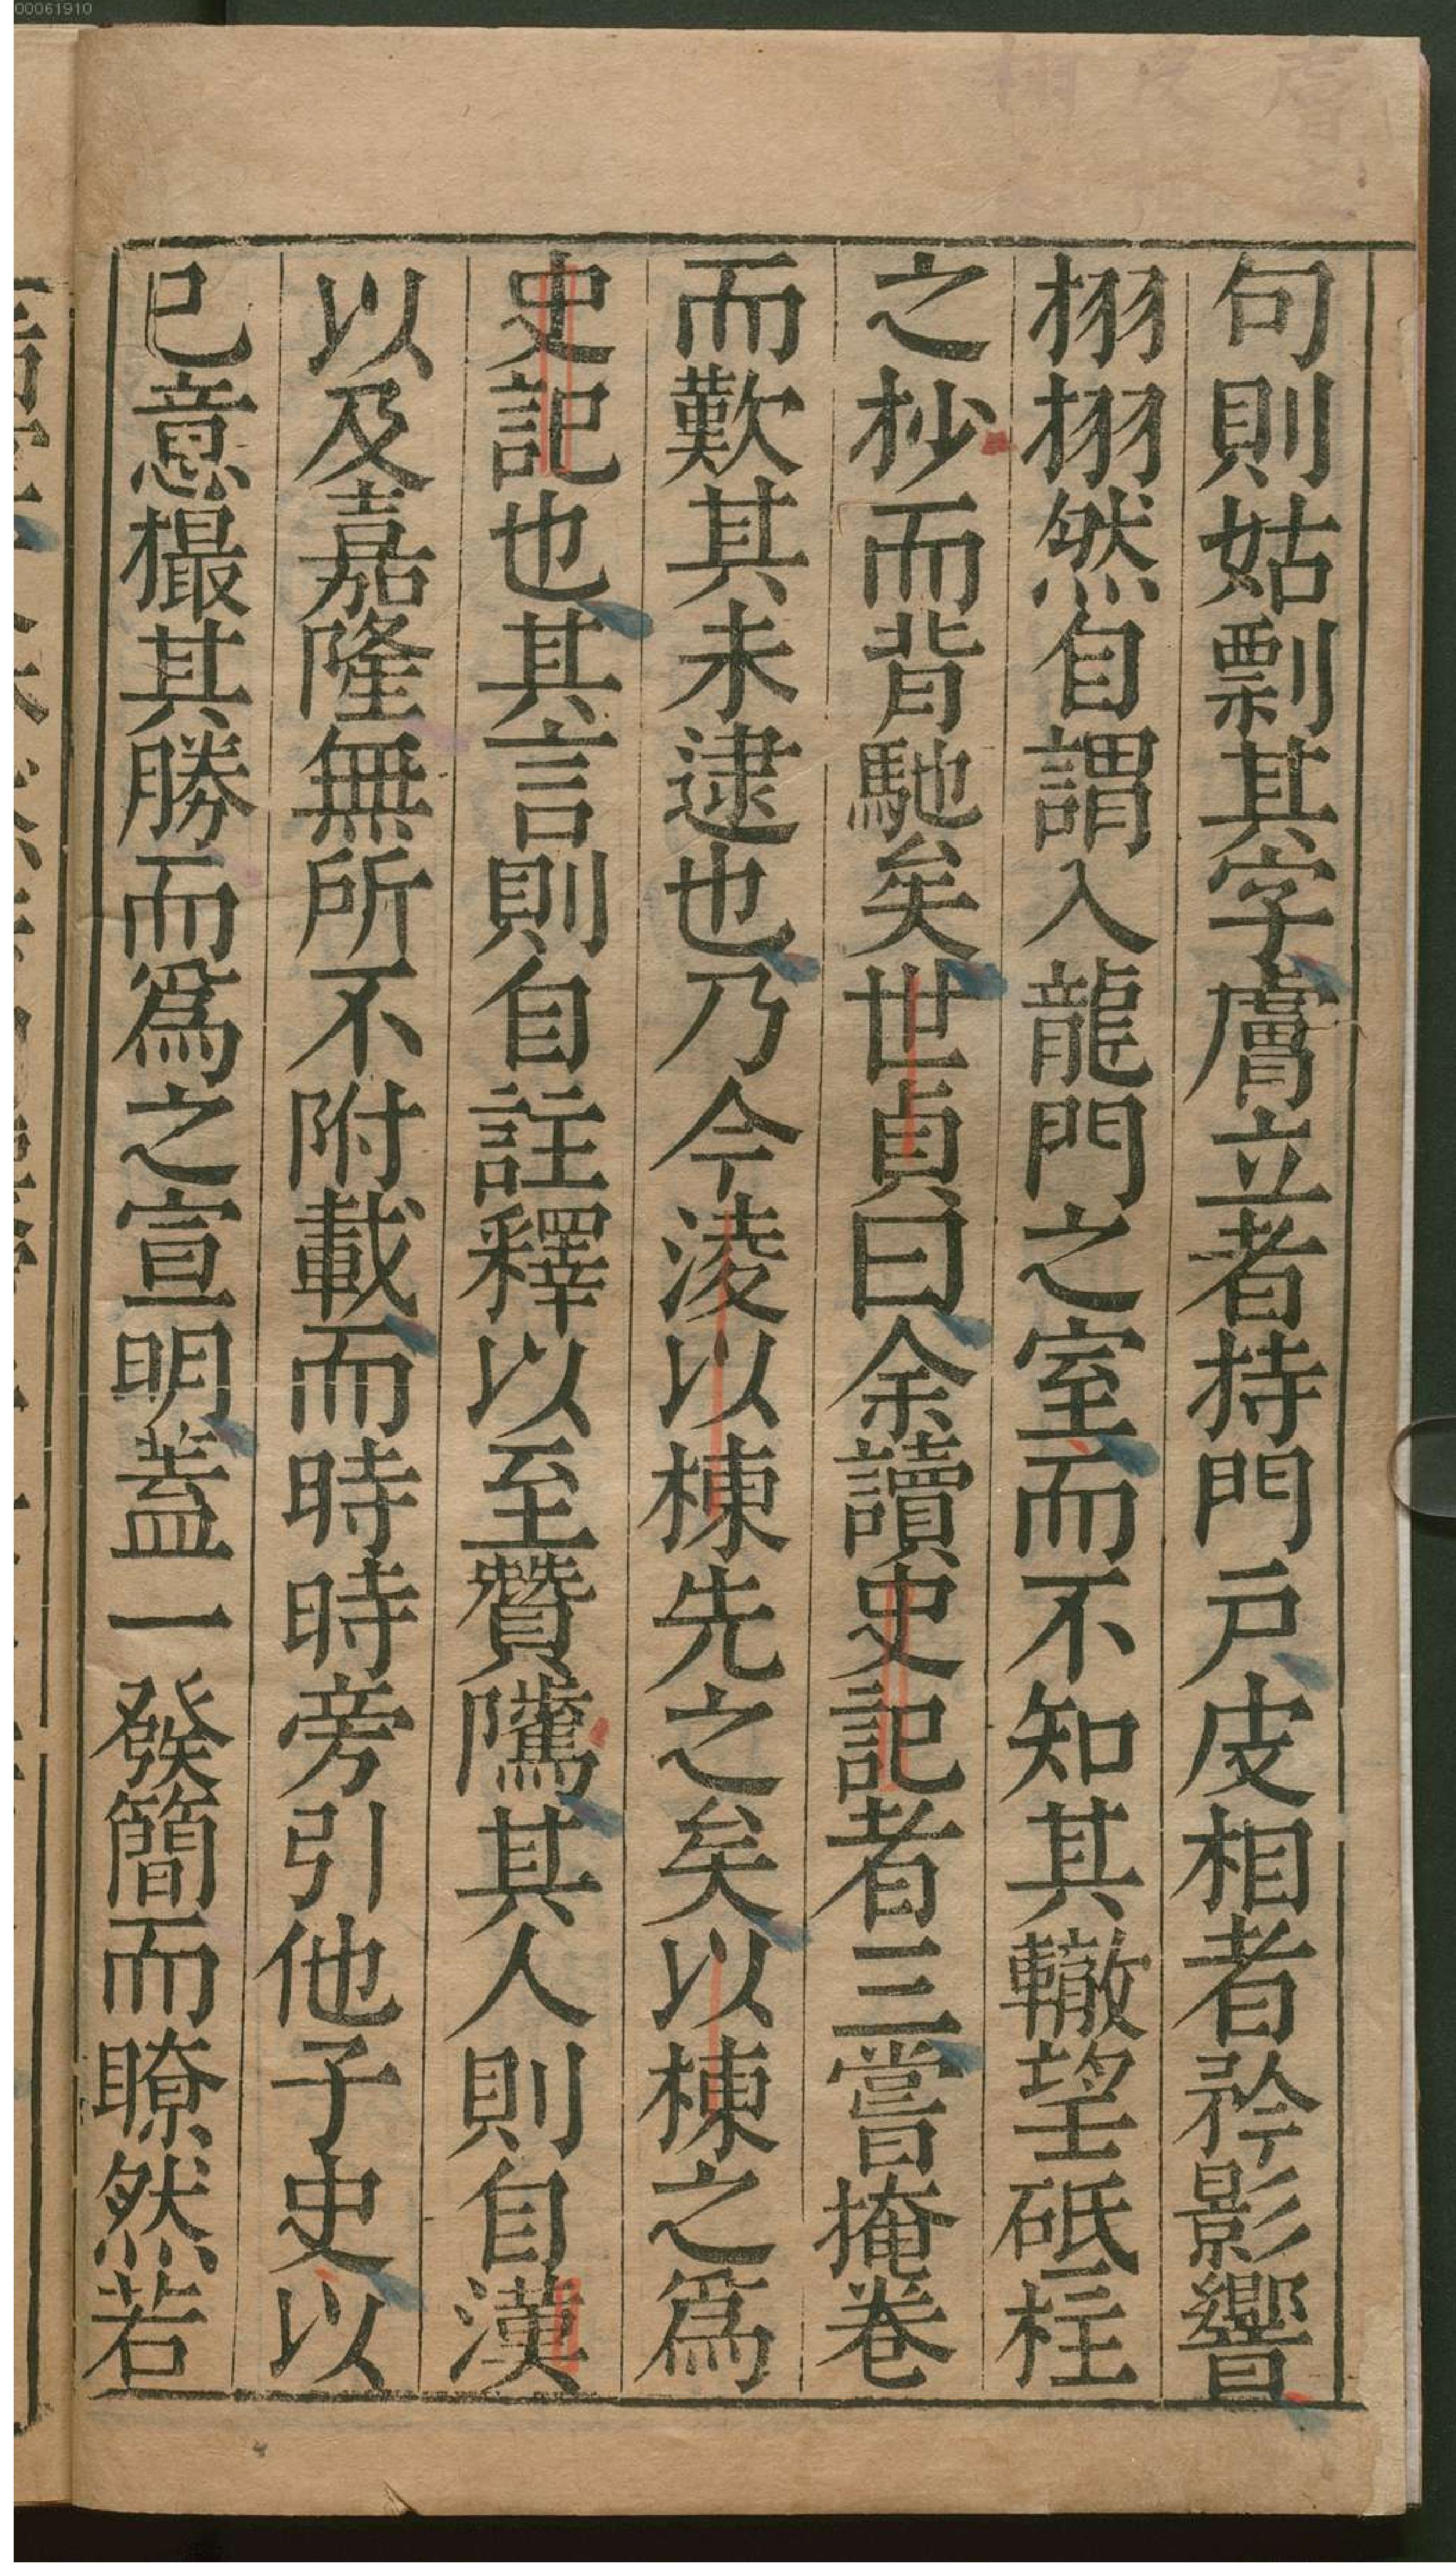 00061910
句則姑剽其字膚立者持門戸皮相者矜影響
栩栩然自謂入龍門之室而不知其轍望砥柱
之杪而背馳矣世貞曰余讀史記者三嘗掩卷
而歎其未逮也乃今淩以棟先之矣以棟之爲
史記也其言則自註釋以至贊隲其人則自漢
以及嘉隆無所不附載而時時旁引他子史以
已意撮其勝而爲之宣明蓋一發簡而瞭然若